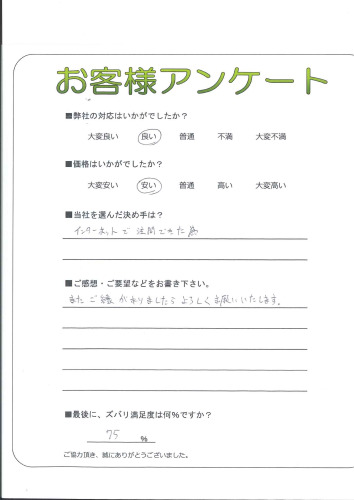 お客様アンケート
■弊社の対応はいかがでしたか?
大変良い 良い 普通 不満 大変不満
■価格はいかがでしたか?
大変安い 安い 普通 高い 大変高い
■当社を選んだ決め手は?
インターネットで注開できた為
■ご感想・ご要望などをお書き下さい。
またご縁がありましたらよろしくお願いいたします。
■最後に、ズバリ満足度は何%ですか?
75 %
ご協力頂き、誠にありがとうございました。